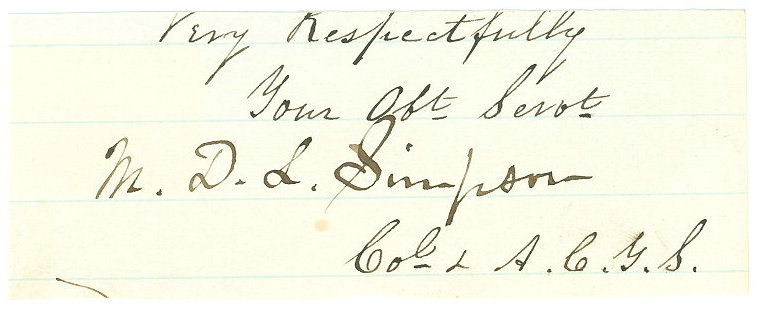 Very Respectfully
Your Obt Servt
M. D. L. Simpson
Col & A. C. G. S.